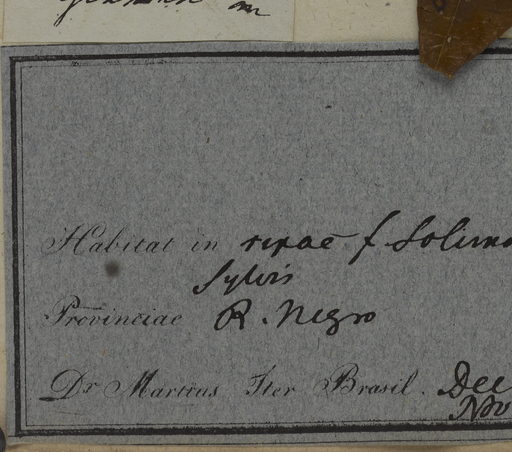 Habitat in ripae f Solimo
Sylvis
Provinciae R. Negro
Dr Martius Iter Brasil. Dec
Nov